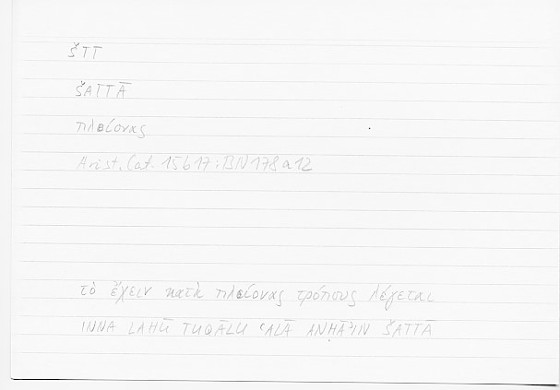 ŠTT
ŠATTĀ
πλείονας
Arist. Cat. 15b17; BN 178a12
τὸ ἔχειν κατὰ πλείονας τρόπους λέγεται
INNA LAHŪ TUQĀLU ʿALĀ ANḤĀʾIN ŠATTĀ